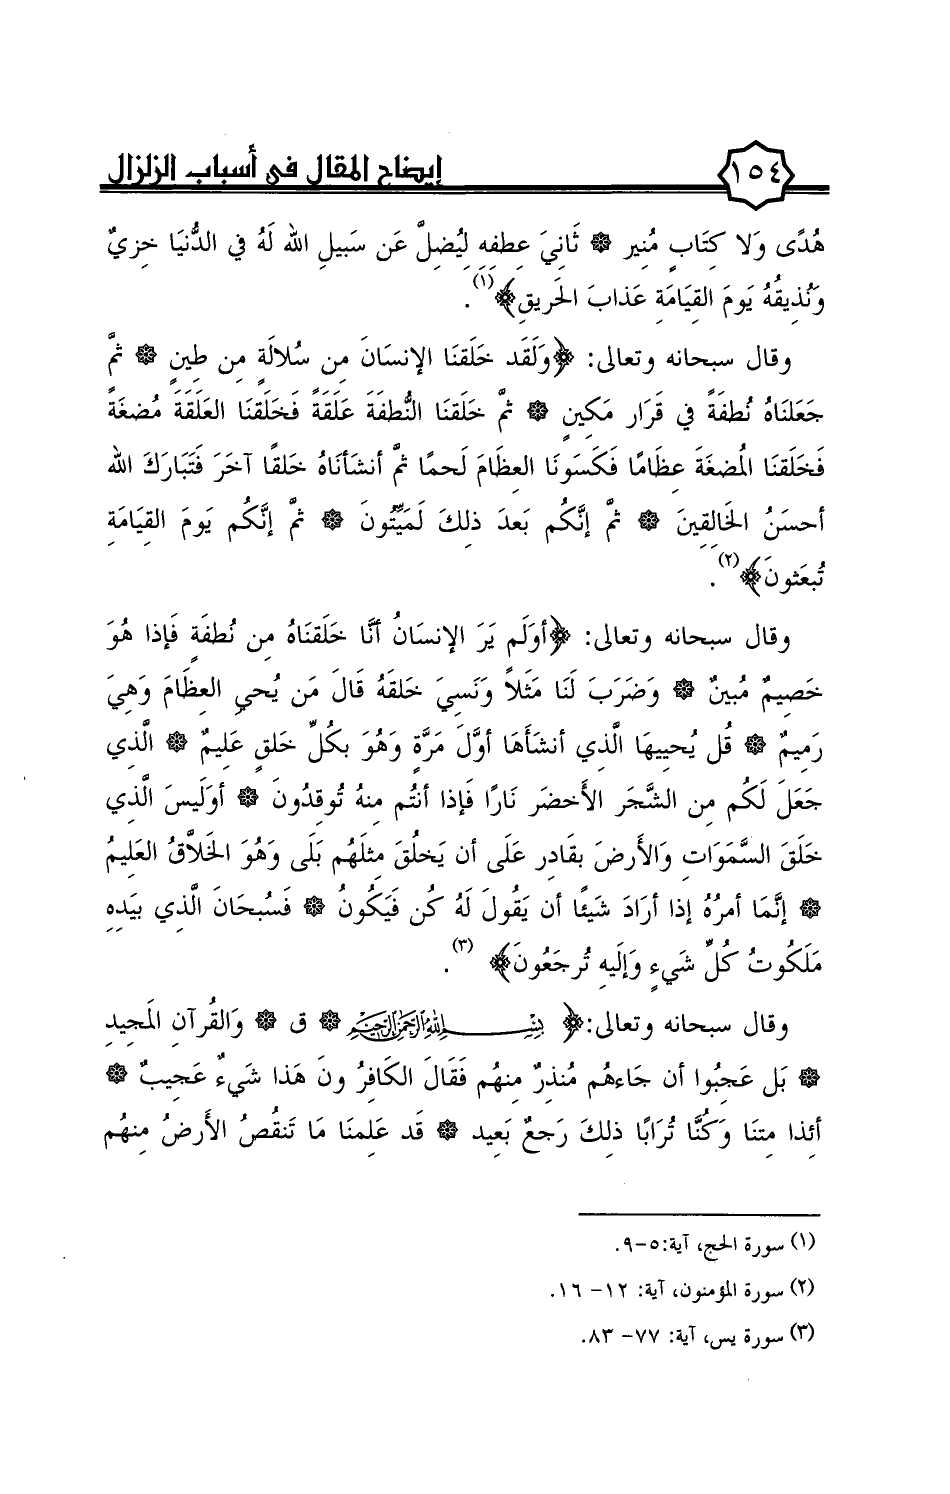 ١٥٤ إيضاح المقال في أسباب الزلزال
هُدًى وَلا كِتَابٍ مُنِيرٍ * ثَانِيَ عِطفِهِ لِيُضِلَّ عَن سَبِيلِ الله لَهُ فِي الدُّنيَا خِزيٌ
وَنُذِيقُهُ يَومَ القِيَامَةِ عَذَابَ الحَرِيقِ﴾(١).
وقال سبحانه وتعالى: ﴿وَلَقَد خَلَقنَا الإِنسَانَ مِن سُلالَةٍ مِن طِينٍ * ثمَّ
جَعَلنَاهُ نُطفَةً فِي قَرَارٍ مَكِينٍ * ثمَّ خَلَقنَا النُّطفَةَ عَلَقَةً فَخَلَقنَا العَلَقَةَ مُضغَةً
فَخَلَقنَا المُضغَةَ عِظَامًا فَكَسَونَا العِظَامَ لَحمًا ثمَّ أنشَأنَاهُ خَلقًا آخَرَ فَتَبَارَكَ الله
أحسَنُ الخَالِقِينَ * ثمَّ إِنَّكُم بَعدَ ذلِكَ لَمَيِّتُونَ * ثمَّ إِنَّكُم يَومَ القِيَامَةِ
تُبعَثونَ﴾(٢).
وقال سبحانه وتعالى: ﴿أوَلَم يَرَ الإِنسَانُ أنَّا خَلَقنَاهُ مِن نُطفَةٍ فَإِذا هُوَ
خَصِيمٌ مُبِينٌ * وَضَرَبَ لَنَا مَثَلاً وَنَسِيَ خَلقَهُ قَالَ مَن يُحيِ العِظَامَ وَهِيَ
رَمِيمٌ * قُل يُحيِيهَا الَّذِي أنشَأهَا أوَّلَ مَرَّةٍ وَهُوَ بِكُلِّ خَلقٍ عَلِيمٌ * الَّذِي
جَعَلَ لَكُم مِن الشَّجَرِ الأخضَرِ نَارًا فَإِذا أنتُم مِنهُ تُوقِدُونَ * أوَلَيسَ الَّذِي
خَلَقَ السَّمَوَاتِ وَالأرضَ بِقَادِرٍ عَلَى أن يَخلُقَ مِثلَهُم بَلَى وَهُوَ الخَلاَّقُ العَلِيمُ
* إِنَّمَا أمرُهُ إِذا أرَادَ شَيئًا أن يَقُولَ لَهُ كُن فَيَكُونُ * فَسُبحَانَ الَّذِي بِيَدِهِ
مَلَكُوتُ كُلِّ شَيءٍ وَإِلَيهِ تُرجَعُونَ﴾ (٣).
وقال سبحانه وتعالى:﴿ بِسْمِ اللَّهِ الرَّحْمَنِ الرَّحِيمِ * ق * وَالقُرآنِ المَجِيدِ
* بَل عَجِبُوا أن جَاءهُم مُنذِرٌ مِنهُم فَقَالَ الكَافِرُونَ هَذا شَيءٌ عَجِيبٌ *
أئِذا مِتنَا وَكُنَّا تُرَابًا ذلِكَ رَجعٌ بَعِيد * قَد عَلِمنَا مَا تَنقُصُ الأرضُ مِنهُم
(١) سورة الحج، آية:٥-٩.
(٢) سورة المؤمنون، آية: ١٢- ١٦.
(٣) سورة يس، آية: ٧٧- ٨٣.